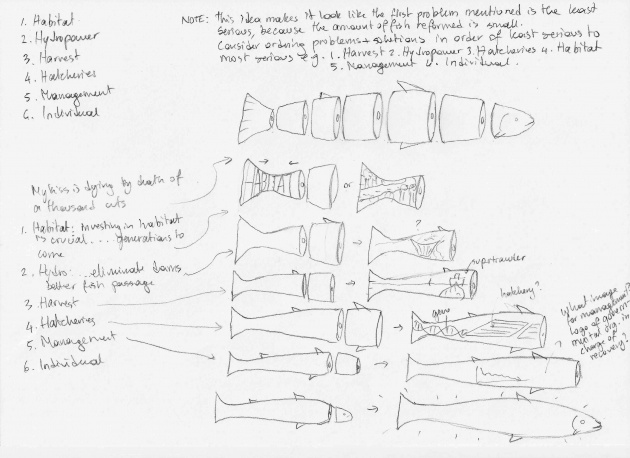 1. Habitat
2. Hydropower
3. Harvest
4. Hatcheries
5. Management
6. Individual
NOTE: this idea makes it look like the first problem mentioned is the least
serious, because the amount of fish reformed is small.
Consider ordering problems + solutions in order of least serious to
most serious e.g. 1. Harvest 2. Hydropower 3. Hatcheries 4. Habitat
5. Management 6. Individual.
Mykiss is dying by death of
a thousand cuts
or
1. Habitat: Investing in habitat
is crucial.... generations to
come
?
2. Hydro: ...eliminate dams
better fish passage
supertrawler
3. Harvest
4. Hatcheries
5. Management
6. Individual
gene
hatchery?
What image
for management?
Logo of govern-
mental org. in
charge of
recovery?
?